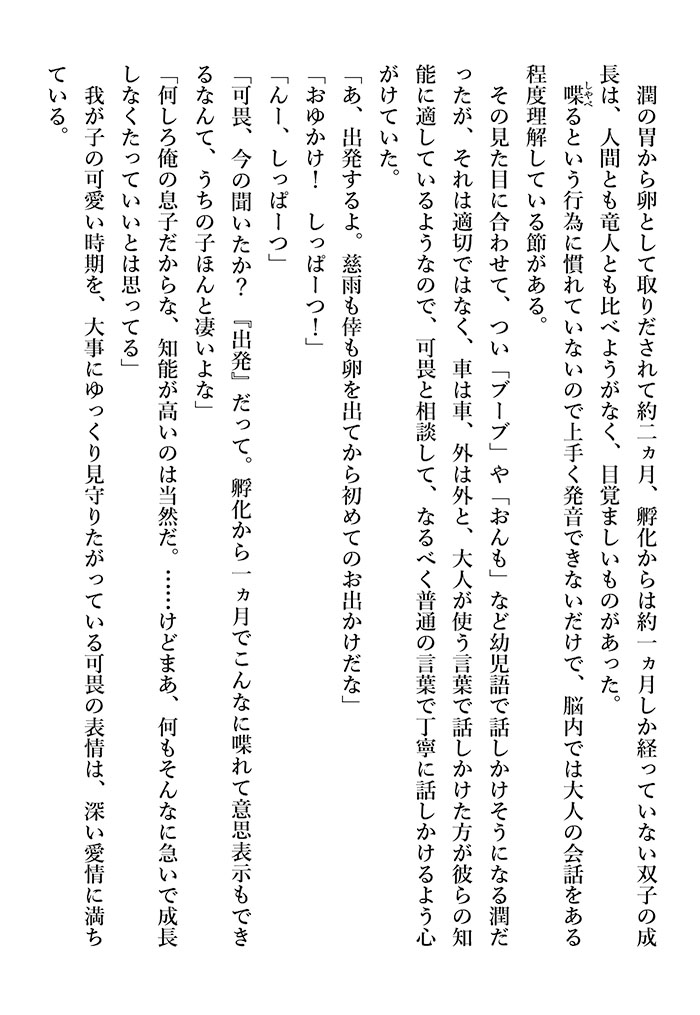 潤の胃から卵として取りだされて約二ヵ月、孵化からは約一ヵ月しか経っていない双子の成
長は、人間とも竜人とも比べようがなく、目覚ましいものがあった。
喋るという行為に慣れていないので上手く発音できないだけで、脳内では大人の会話をある
しゃべ
程度理解している節がある。
その見た目に合わせて、つい「ブーブ」や「おんも」など幼児語で話しかけそうになる潤だ
ったが、それは適切ではなく、車は車、外は外と、大人が使う言葉で話しかけた方が彼らの知
能に適しているようなので、可畏と相談して、なるべく普通の言葉で丁寧に話しかけるよう心
がけていた。
「あ、出発するよ。慈雨も倖も卵を出てから初めてのお出かけだな」
「おゆかけ！　しっぱーつ！」
「んー、しっぱーつ」
「可畏、今の聞いたか？　『出発』だって。孵化から一ヵ月でこんなに喋れて意思表示もでき
るなんて、うちの子ほんと凄いよな」
「何しろ俺の息子だからな、知能が高いのは当然だ。……けどまあ、何もそんなに急いで成長
しなくたっていいとは思ってる」
我が子の可愛い時期を、大事にゆっくり見守りたがっている可畏の表情は、深い愛情に満ち
ている。